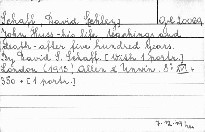 Schaff, David Schley
John Huss - his life, teachings and
death - after five hundred years.
By David S. Schaff. [With 1 portr.]
London (1915) Allen & Unwin. 8° XV +
350 + [1 portr.]
7-12-49